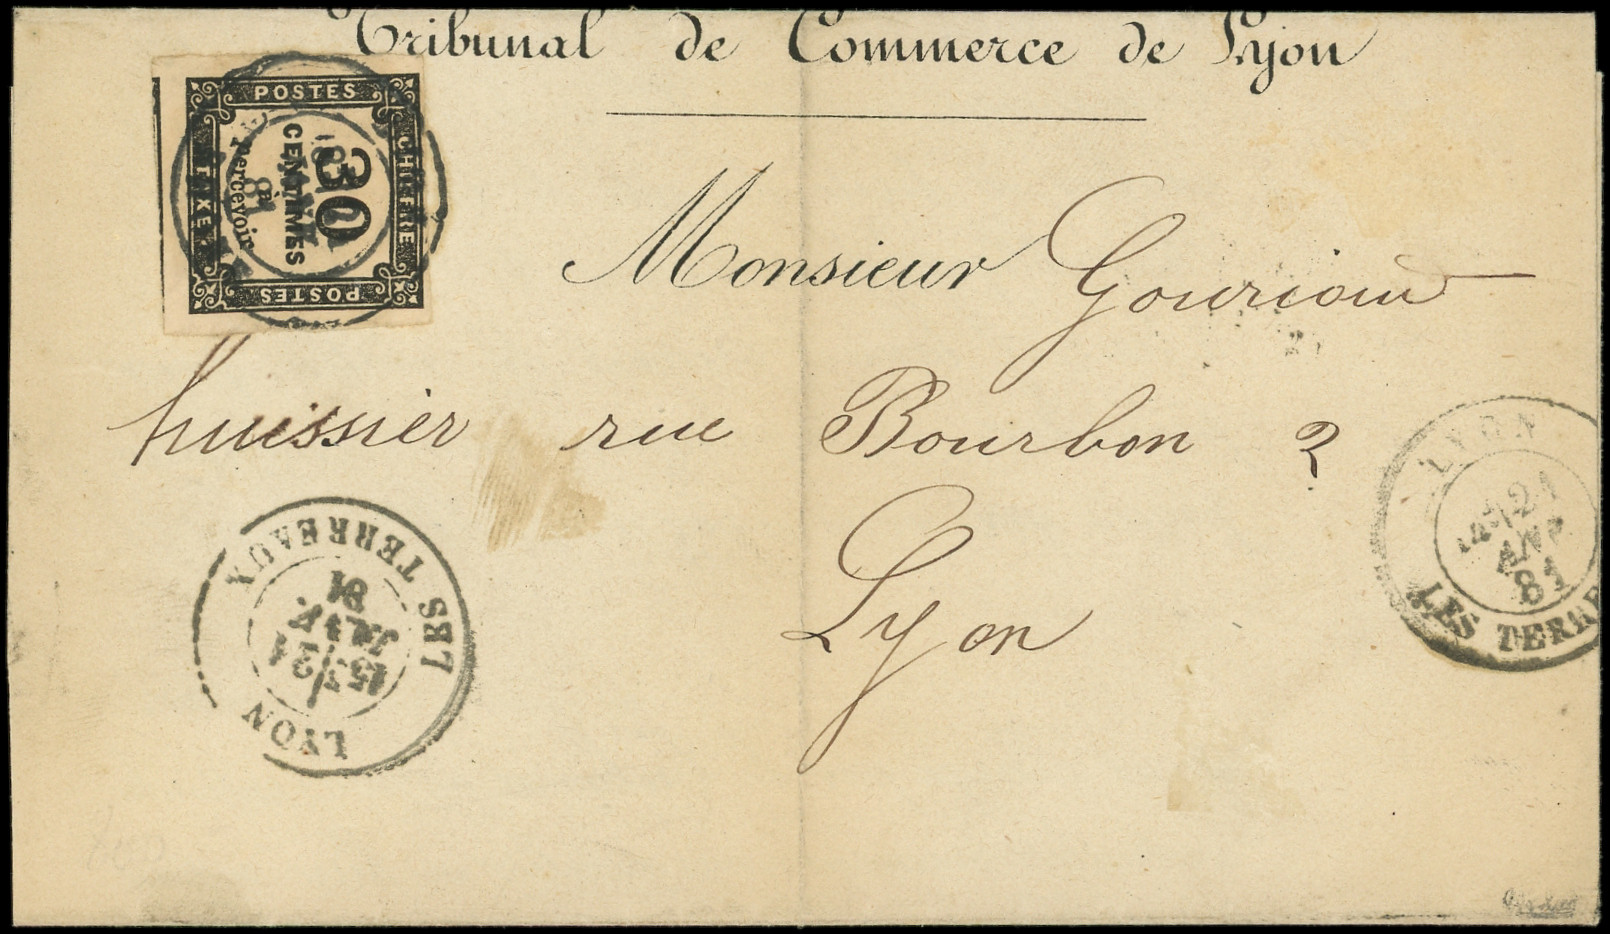 Tribunal de Commerce de Lyon
POSTES
CHIFFRE
TAXE
POSTES
30
CENTIMES
à
percevoir
81
Monsieur Gouriou
huissier rue Bourbon 2
Lyon
LYON
21
JANV
81
LES TERRE
LYON
LES TERREAUX
21
81